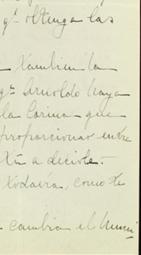 qe. obtenga las
también la
qe. Arnoldo haya
la Corina que
proporcionar entre
a decirle.
todavía, como te
cambia el